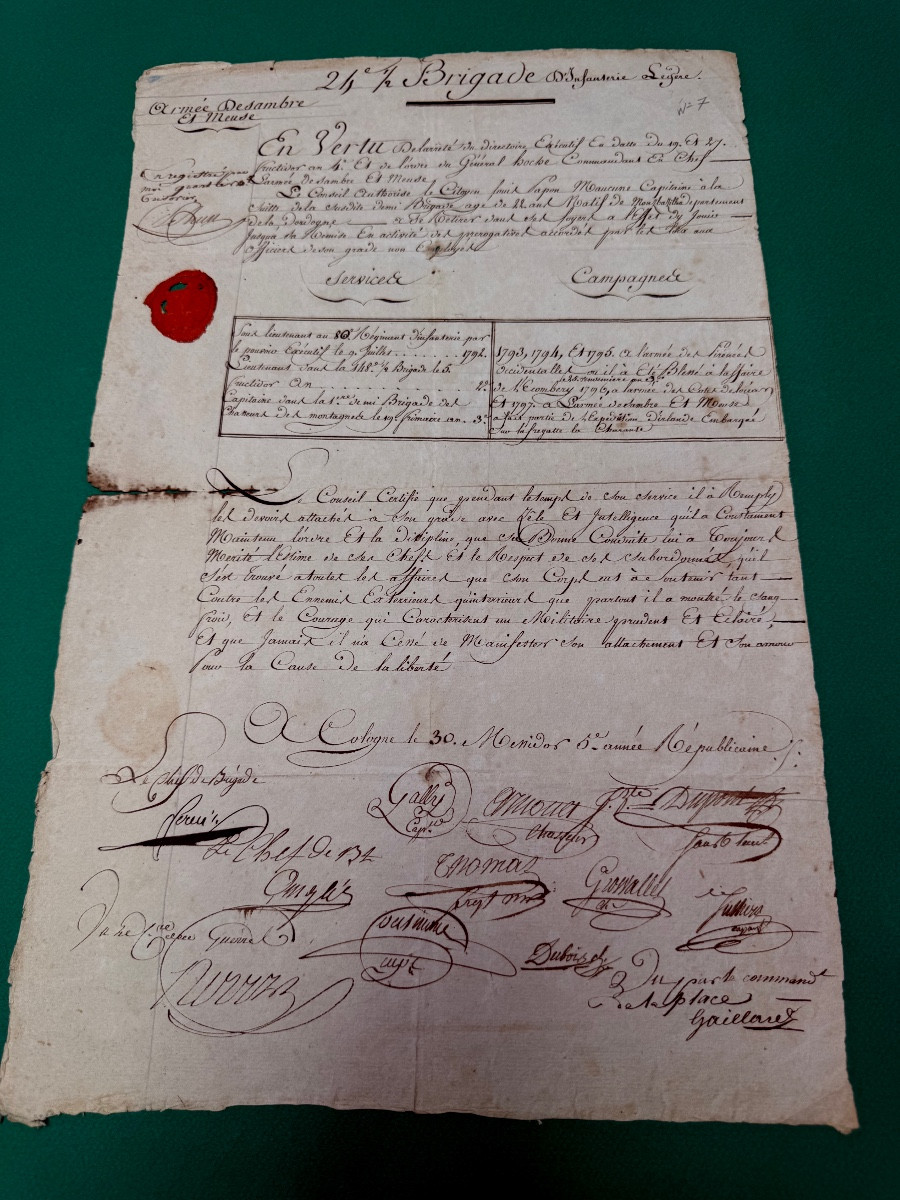 24e ½ Brigade D'Infanterie Légère.
N° 7
Armée Desambre
Et Meuse
Enregistré par
moi
En Vertu De larrêté du directoire Exécutif En datte du 19. Et 27.
fructidor an 4e. Et de l'ordre du Général hoche Commandant En Chef
L'armée desambre Et Meuse;
Le Conseil authorise le Citoyen Capitaine à la
Suitte de la susdite demi Brigade agé de 22 ans Natif de département
de la dordogne a se Retirer dans ses foyers a l'effet dy Jouir
Jusqua sa Remise En activité des prerogatives accordés par les lois aux
officiers de son grade non Employés
Service de
Campagne de
Sous lieutenant au Régiment d'infanterie par
le pouvoir Exécutif le 9. Juillet . . . . . . . 1792.
Lieutenant dans la 148e. ½ Brigade le 5.
fructidor an . . . . . . . 2e.
Capitaine dans la 1ere demi Brigade des
Chasseurs des montagnes le 19. frimaire an. 3e.
1793, 1794, Et 1795. a larmée des Pirénées
occidentalles ou il à Eté Blessé à laffaire
an 3e.
de 1796, a larmée des Cotes de
Et 1797. a L'armée desambre Et Meuse
a fait partie de l'Expédition d'irlande Embarqué
sur la fregatte la Charente
Le Conseil Certifie que pendant le temps de son service il à Remply
les devoirs attachés à son grade avec Zéle Et Intelligence qu'il a Constament
Maintenu l'ordre Et la discipline, que sa Bonne Conduite lui à Toujours
Merité l'Estime de ses Chefs Et le Respect de ses subordonnés, qu'il
S'est Trouvé a toutes les affaires que son Corps eut à soutenir tant
Contre les Ennemis Exterieurs qu'interieurs que partout il a montré le sang
froid, Et le Courage qui Caracterisent un Militaire prudent Et Eclairé,
Et que Jamais il n'a Cessé de Manifester Son attachement Et Son amour
Pour la Cause de la liberté
A Cologne le 30. Messidor 5e. année Républicaine
Le Chef de Brigade
Gally
Capne
Chasseur
Dupont
Sous Lieut
Le Chef de Bt.
Thomas
Sergt
Vu
Guerre
capt
Dubois
Vu par le commandt
de la place
Gaillard